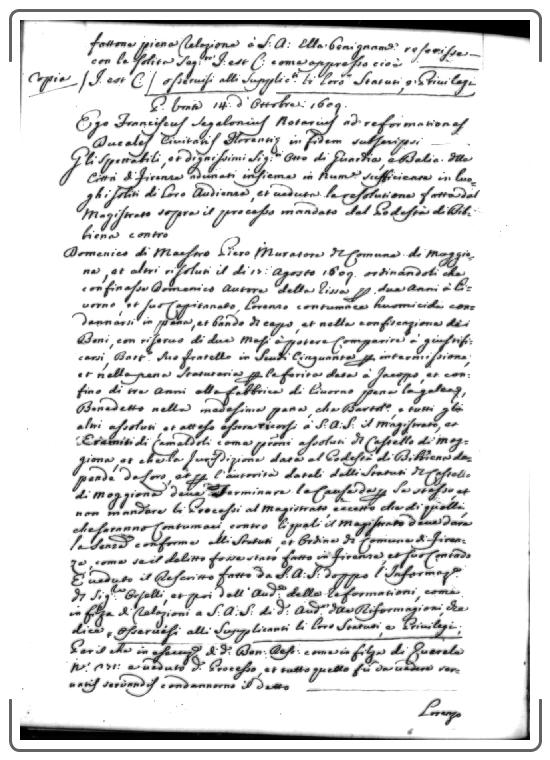 fattone piena Relazione à S: A: Ella benignam.e rescrisse
con la solita Seg.ra J. est C. come appresso cioè
Copia / J. est C / osservisi alli Supplic.ti li loro Statuti, e Privilegi
14: d'Ottobre: 1609.
Ego Franciscus Segalonius Notarius ad reformationes
Ducales Civitatis Florentiæ in fidem subscripsi
Gli Spettabili, et dignissimi Sig.ri Otto di Guardia, e Balia della
Città di Firenze adunati insieme in num.o sufficiente in luo-
ghi soliti di loro Audienza, et veduta la resoluzione fatta dal
Magistrato sopra il processo mandato dal Podestà di Bib-
biena contro
Domenico di Maestro Piero Muratore del Comune di Moggio-
na, et altri risoluti il di 12: Agosto 1609. ordinandoli che
confinasse Domenico Autore della Rissa p. due Anni à Li-
vorno, et suo Capitanato, Lorenzo contumace huomicida con-
dannarsi in pena, et bando di capo, et nella confiscazione dei
Beni, con riservo di due Mesi à potere Comparire à giustifi-
carsi, Bart.o suo fratello in Scudi Cinquanta p. intermissione,
et nella pena Statutaria p. la ferita data à Jacopo, et con-
fino di tre Anni alla fabbrica di Livorno pena la galea,
Benedetto nella medesima pena, che Bartol.o e tutti gli
altri assoluti et atteso essere ricorsi à S.A.S. il magistrato, et
Eremiti di Camaldoli come proni assoluti del Castello di Mog-
giona et che la Jurisdizione data al Podestà di Bibbiena de-
pende da loro, et p. l'autorità datali dalli Statuti del Castello
di Moggiona deve terminare la Causa da p. se stesso, et
non mandare li Processi al Magistrato eccetto che di quelli,
che saranno Contumaci, contro li quali il Magistrato deve dare
la Senza conforme alli Statuti, et Ordini del Comune di Firen-
ze, come se il delitto fosse stato fatto in Firenze et suo Contado
E veduto il Rescritto fatto da S: A: S: doppo l'Informaz.e
di Sig.re et poi dell'Aud.re delle Reformationi, come
in filza di Relazioni a S.A.S. di d.o Aud.re delle Riformagioni, che
dice, osservisi alli Supplicanti li loro Statuti, e Privilegi,
come in filza di Querele
N.o 171: e veduto d.o Processo, et tutto quello fù da vedere ser-
vatis servandis condannorno il detto
Lorenzo